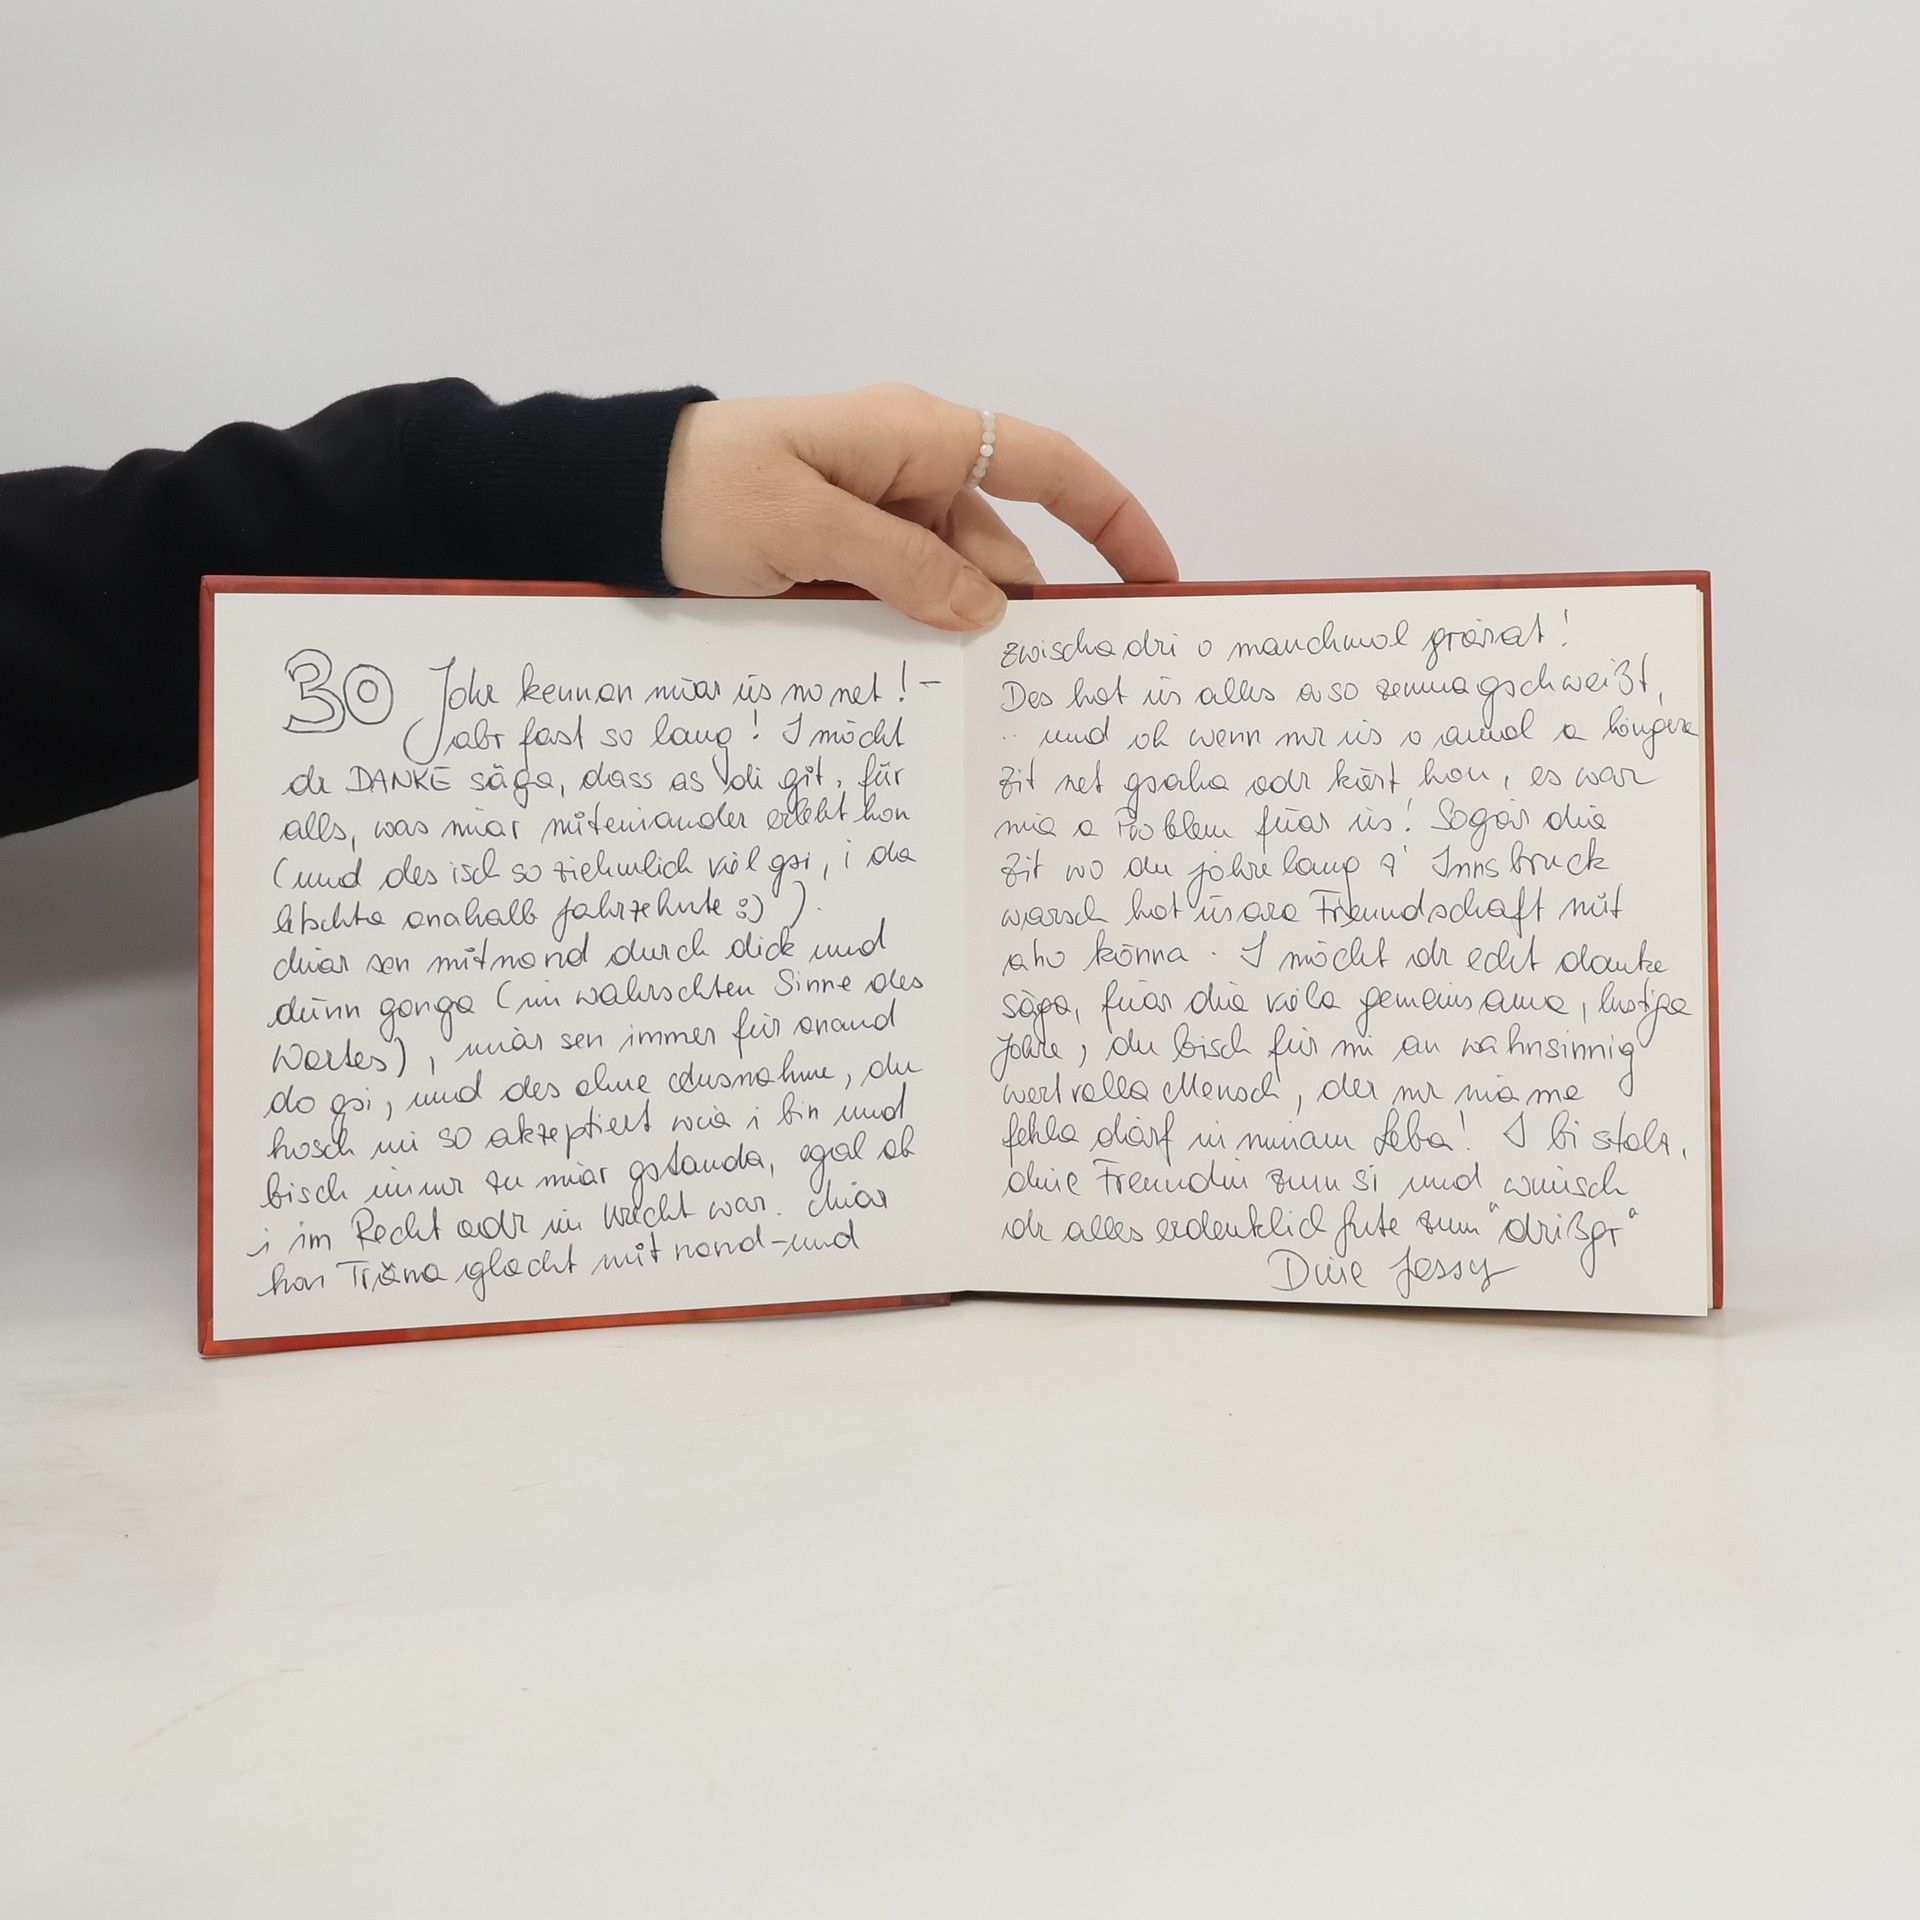 30 Johr kennan miar üs no net! –
abr fast so lang! I möcht
dr DANKE säga, dass as di git, für
alls, was miar miteinander erlebt hon
(und des isch so ziehmlich viel gsi, i da
letschta anahalb Jahrzehnte :) ).
Miar sen mitnand durch dick und
dünn ganga (im wahrschten Sinne des
Wortes), miar sen immer für anand
do gsi, und des ohne Ausnahme, du
hosch mi so akzeptiert wia i bin und
bisch immr zu miar gstanda, egal ob
i im Recht odr im Urecht war. Miar
hon Träna glacht mitnand – und
zwischadri o manchmol gräرat!
Des hot üs alles aso zemmagschweißt,
.. und oh wenn mr üs o amol a längera
Zit net gseha odr hört hon, es war
nia a Problem füar üs! Sogar dia
Zit wo du johrelang z' Innsbruck
warsch hot üsara Freundschaft nüt
aho könna. I möcht dr echt danke
säga, füar dia viela gemeinsama, lustiga
Johre, du bisch für mi an wahnsinnig
wertvolla Mensch, der mr nia me
fehla därf in minam Leba! I bi stolz,
dine Freundin zum si und wünsch
dr alles erdenklich Gute zum "drißgr"
Dine Jessy